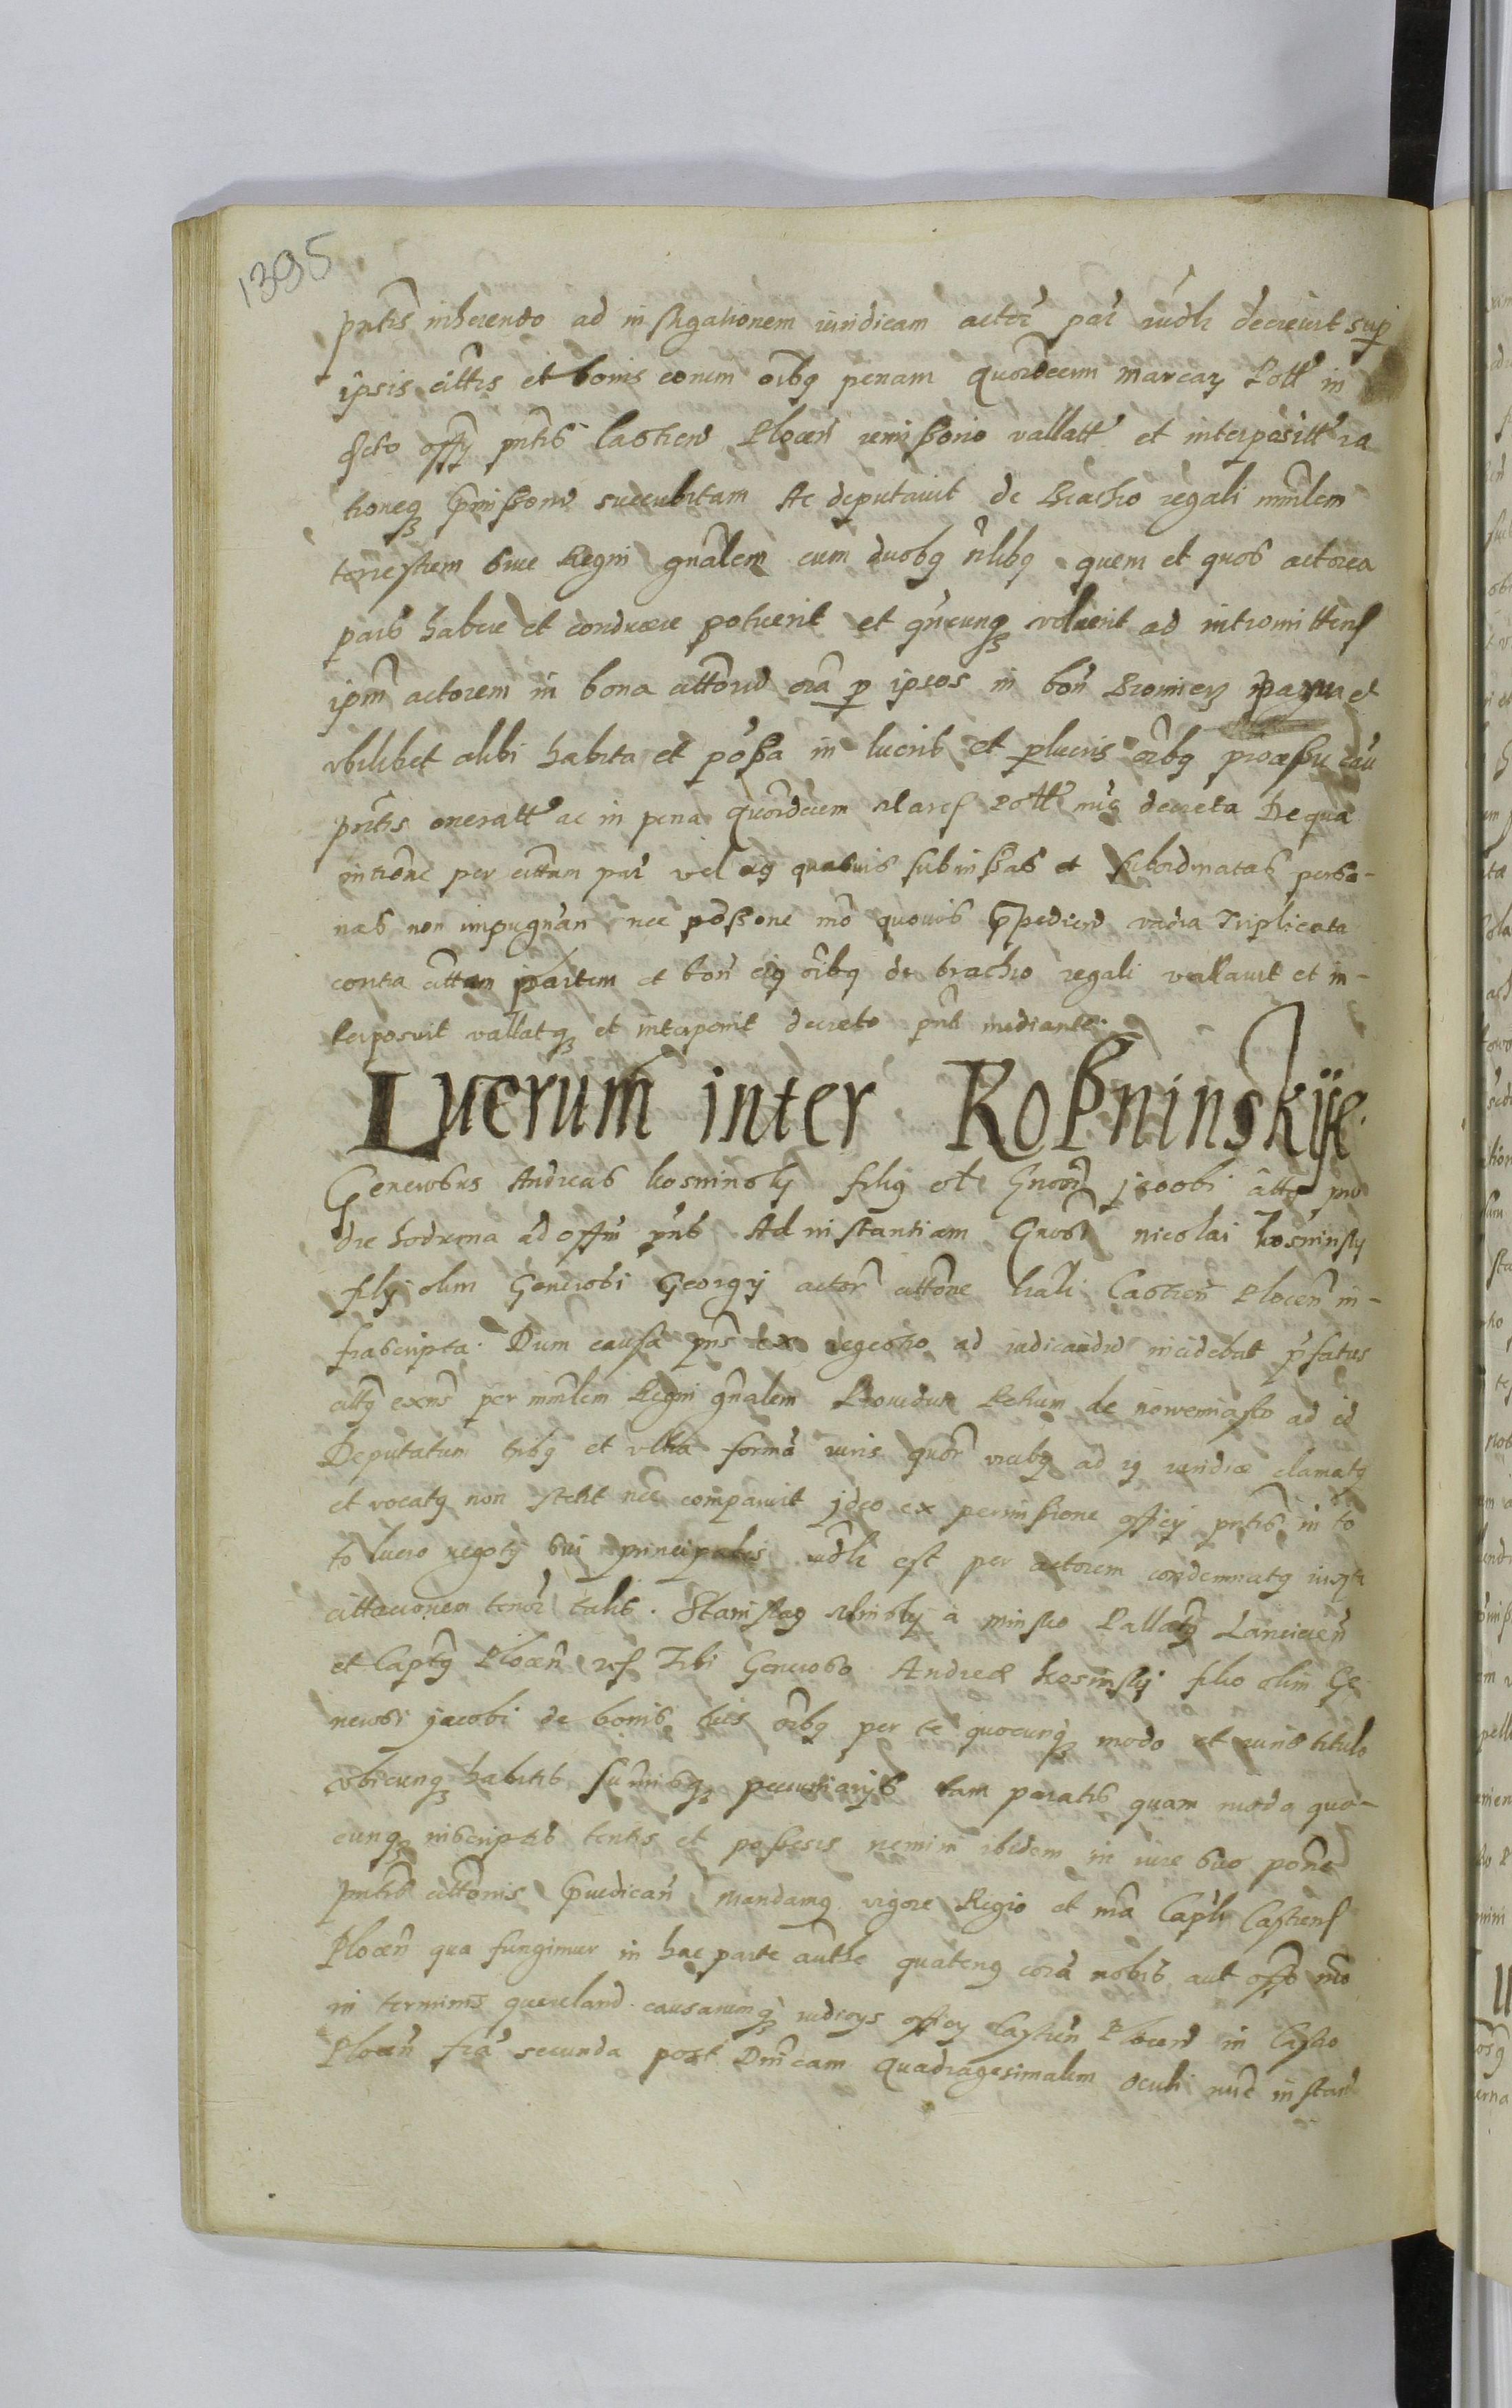 1395
pntis inherendo ad instigationem iuridicam actor par iudli decreuit sup
ipsis cittis et bonis eorum oibq penam quordecim marcarz Poll in
dcto offy pntis Castren Plocen remissorio vallatt et interpositt ra
tioneq pmissor succubitam Ac deputauit de Brachio regali mnlem
terrestrem siue Regni gnalem cum duobq nlibq quem et quos actorea
pars habere et conducere potuerit et qncunq voluerit ad intromittend
ipm actorem in bona cittor ora p ipsos in bon Bromierz parua et
vbilibet alibi habita et possa in lucris et plucris oibq processu cau
pntis oneratt ac in pena quordecem Marcs Poll nuc decreta De qua
introne per cittam par vel eq quasuis submissas et subordinatas perso-
nas non impugnan nec possone mo quouis Ppediend vadia Triplicata
contra cittam partem et bon eiq oibq de brachio regali vallauit et in-
terposuit vallatq et interponit decreto pnti mediante.
Lucrum inter Kossninskije.
Generosus Andreas kosninsky filiq ol Gnosi jacobi citto pro
die hodierna ad offm pns Ad instantiam Gnosi nicolai kosninsky
fily olim Generosi Georgy actor cittone trali Castren Plocen in-
frascripta. Dum causa pns ex regestro ad iudicandu incidebat pfatus
cittq exns per mnlem Regni gnalem Prouidum Petrum de nowemiasto ad id
Deputatum tribq et vltra forma iuris quor vicibq ad iq iuridice clamatq
et vocatq non stetit nec comparuit jdeo ex permissione officy pntis in to
to lucro negoty sui principalis iudli est per actorem condemnatq iuxta
cittacionem tenor talis. Stanislaq Minsky a minsko Pallatq Lancicien
et Captq Plocen rf Tibi Generoso Andreæ kosinsky filio olim Ge
nerosi jacobi de bonis tuis oibq per te quocunq modo et iuris titulo
vbicunq habitis summisq pecuniarys tam paratis quam modo quo-
cunq inscriptis tentis et possesis nemini ibidem in iure suo pone
pntis cittonis Piudican mandamq vigore Regio et mea Capli Castrens
Plocen qua fungimur in hac parte authe quatenq cora nobis aut offo nro
in terminis quereland. causarumq iudicys officy Castren Plocen in Castro
Plocen fra secunda post Dnicam quadragesimalem Oculi nuc instan